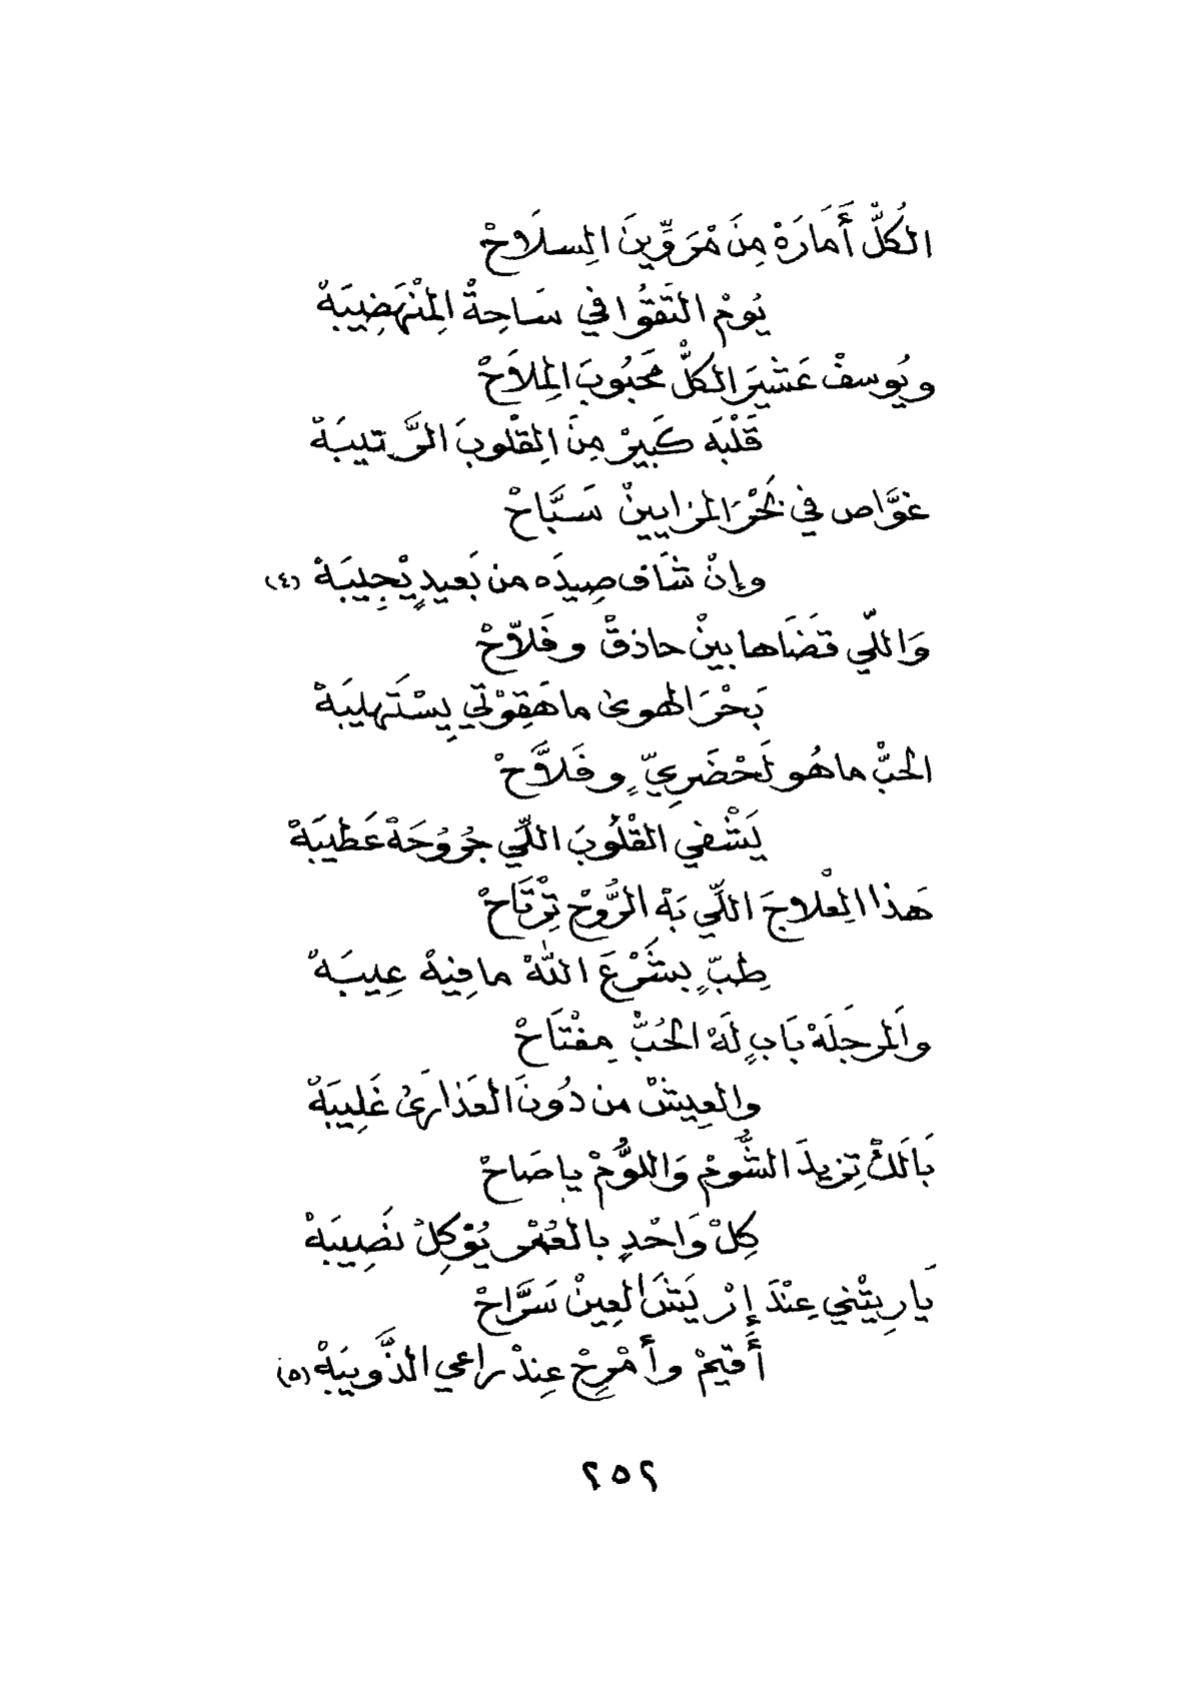 الكُلّْ أَمَارَهْ مِنَ مْرَوِّينَ الِسلَاحْ
يُومْ التَقَوُا في سَاحِةْ الِمْنْهَضِيبَهْ
ويُوسفْ عَشْيرَ الكلّْ مَحبُوبَ الِملاَحْ
قَلْبَه كَبيرْ مِنَ الِقلْوبَ الرَّتيبَهْ
غوَّاص في بَحْرَ المزايينْ سَبَّاحْ
وإِنْ شَاف صِيدَه من بَعيدٍ يْجِيبَهْ (٤)
وَاللّي قضَاها بينْ حاذقْ وفَلاّحْ
بَحْرَ الهوىٰ ما هَقِوْتي يِسْتَهيبَهْ
الحبّْ ما هُو لَحْضَرِيّ ٍوفَلاَّحْ
يَشْفي القْلُوبَ اللّي جرُوُحَهْ عَطيبَهْ
هَذا الِعْلاجَ اللّي بَهْ الرُّوحْ تِرْتَاحْ
طِبّ ٍبشَرْعَ اللهْ ما فِيهْ عِيبَهْ
واَلمرجَلَهْ بَابٍ لَهْ الحُبّْ مِفْتَاحْ
والعِيشْ من دُونَ العَذارَىٰ غَلِيبَهْ
بَالَكْ تِزيدَ الشُّومْ وَاللوُّمْ يا صَاحْ
كِلْ وَاحْدٍ بالعُمْر يُوْكِلْ نَصِيبَهْ
يَارِيتْني عِنْدَ إرْيَشَ العِينْ سَرَّاحْ
أَقيمْ وأَمْرِحْ عِندْ راعي الذَّويبَهْ (٥)
٢٥٢